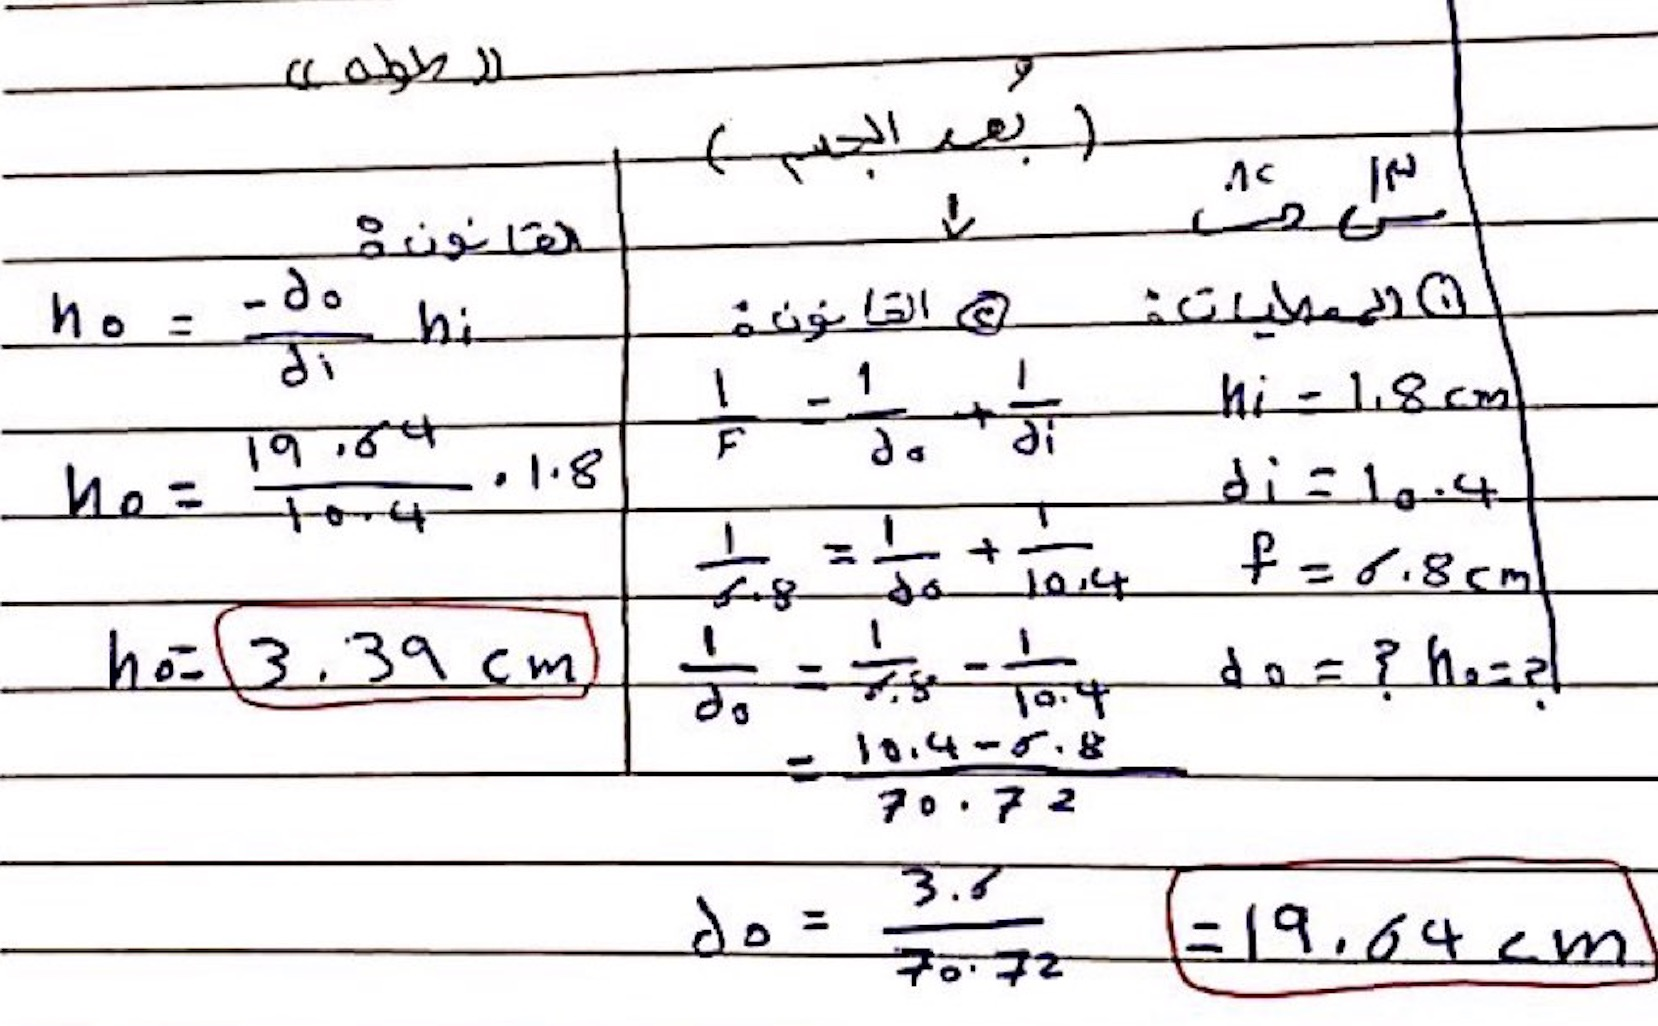 س ١٣ ص ٨٢
(بُعد الجسم)
↓
① المعطيات:
hi = 1.8 cm
di = 10.4
f = 6.8 cm
do = ? ho = ?
② القانون:
1/F = 1/do + 1/di
1/6.8 = 1/do + 1/10.4
1/do = 1/6.8 - 1/10.4
= 10.4 - 6.8 / 70.72
do = 3.6 / 70.72 = 19.64 cm
«طوله»
القانون:
ho = -do/di hi
ho = 19.64/10.4 . 1.8
ho = 3.39 cm